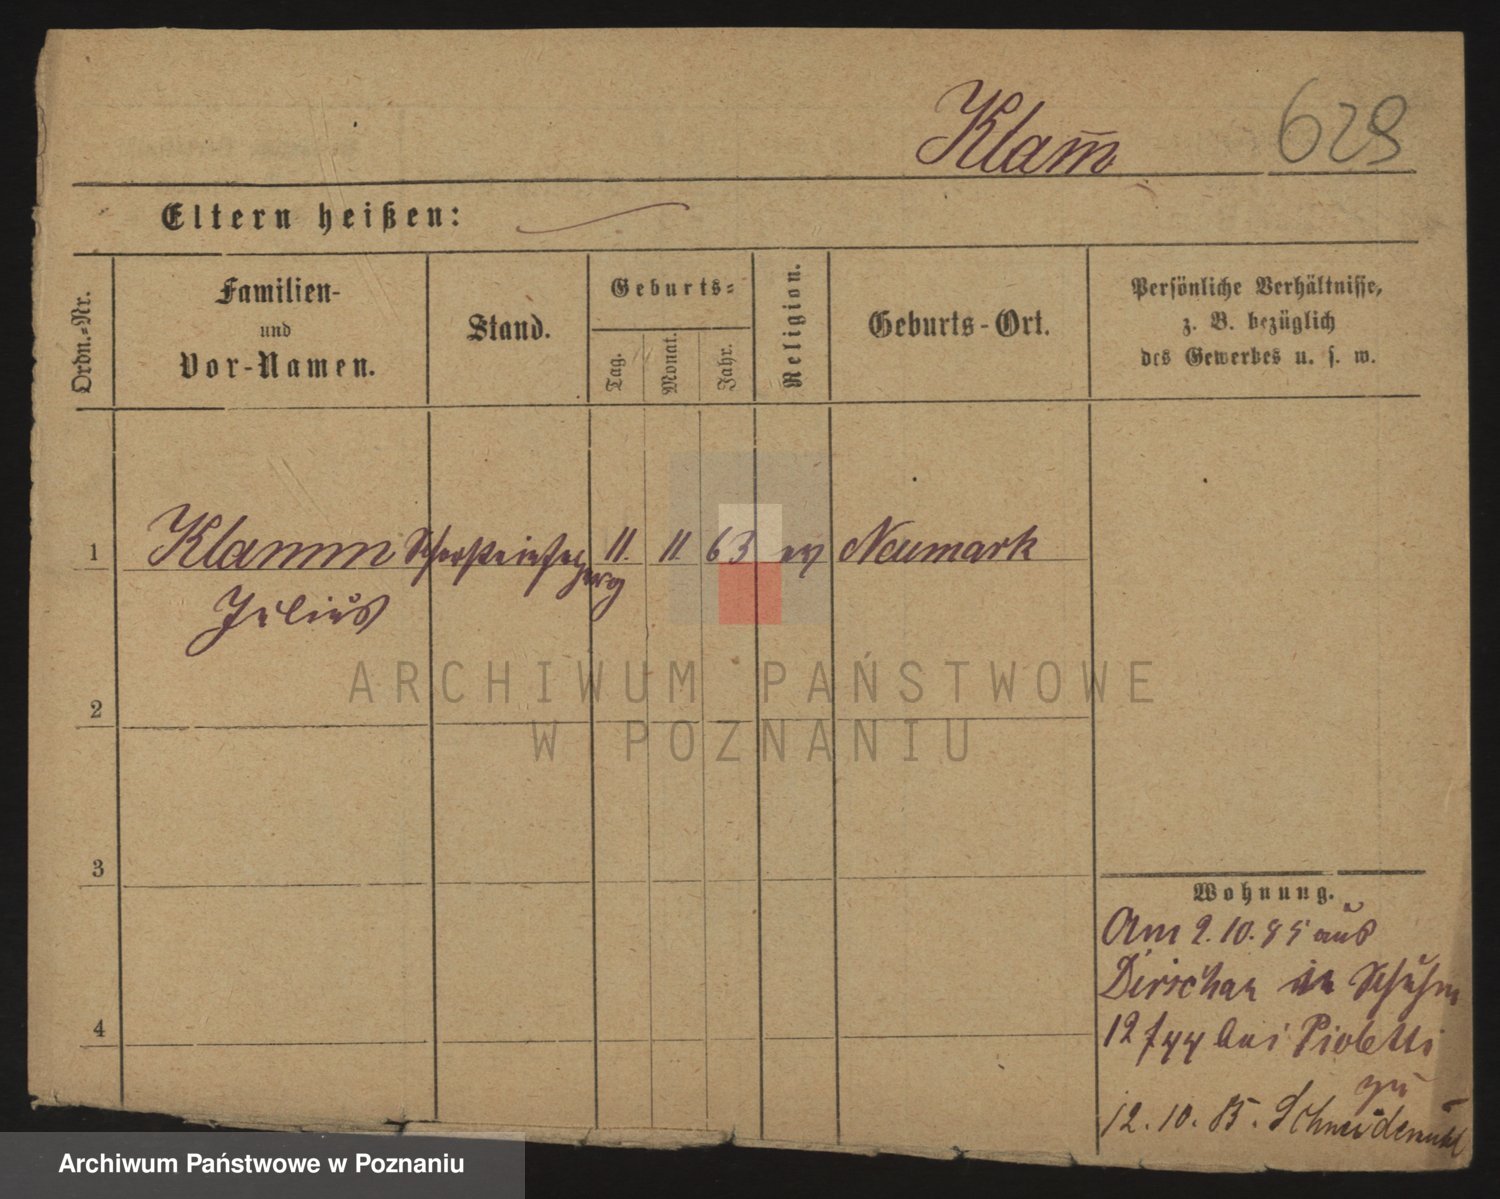 Klam̅ 628
Eltern heißen:
Ordn.-Nr.
Familien-
und
Vor-Namen.
Stand.
Geburts-
Tag.
Monat.
Jahr.
Religion.
Geburts-Ort.
Persönliche Verhältnisse,
z. B. bezüglich
des Gewerbes u. s. w.
1 Klamm 11. 11 63 ev Neumark
Julius
2
3
4
Wohnung.
Am 9.10.85 aus
Dirschau in
12 bei
zu
12.10.85. Schneidemühl
ARCHIWUM PAŃSTWOWE
W POZNANIU
Archiwum Państwowe w Poznaniu